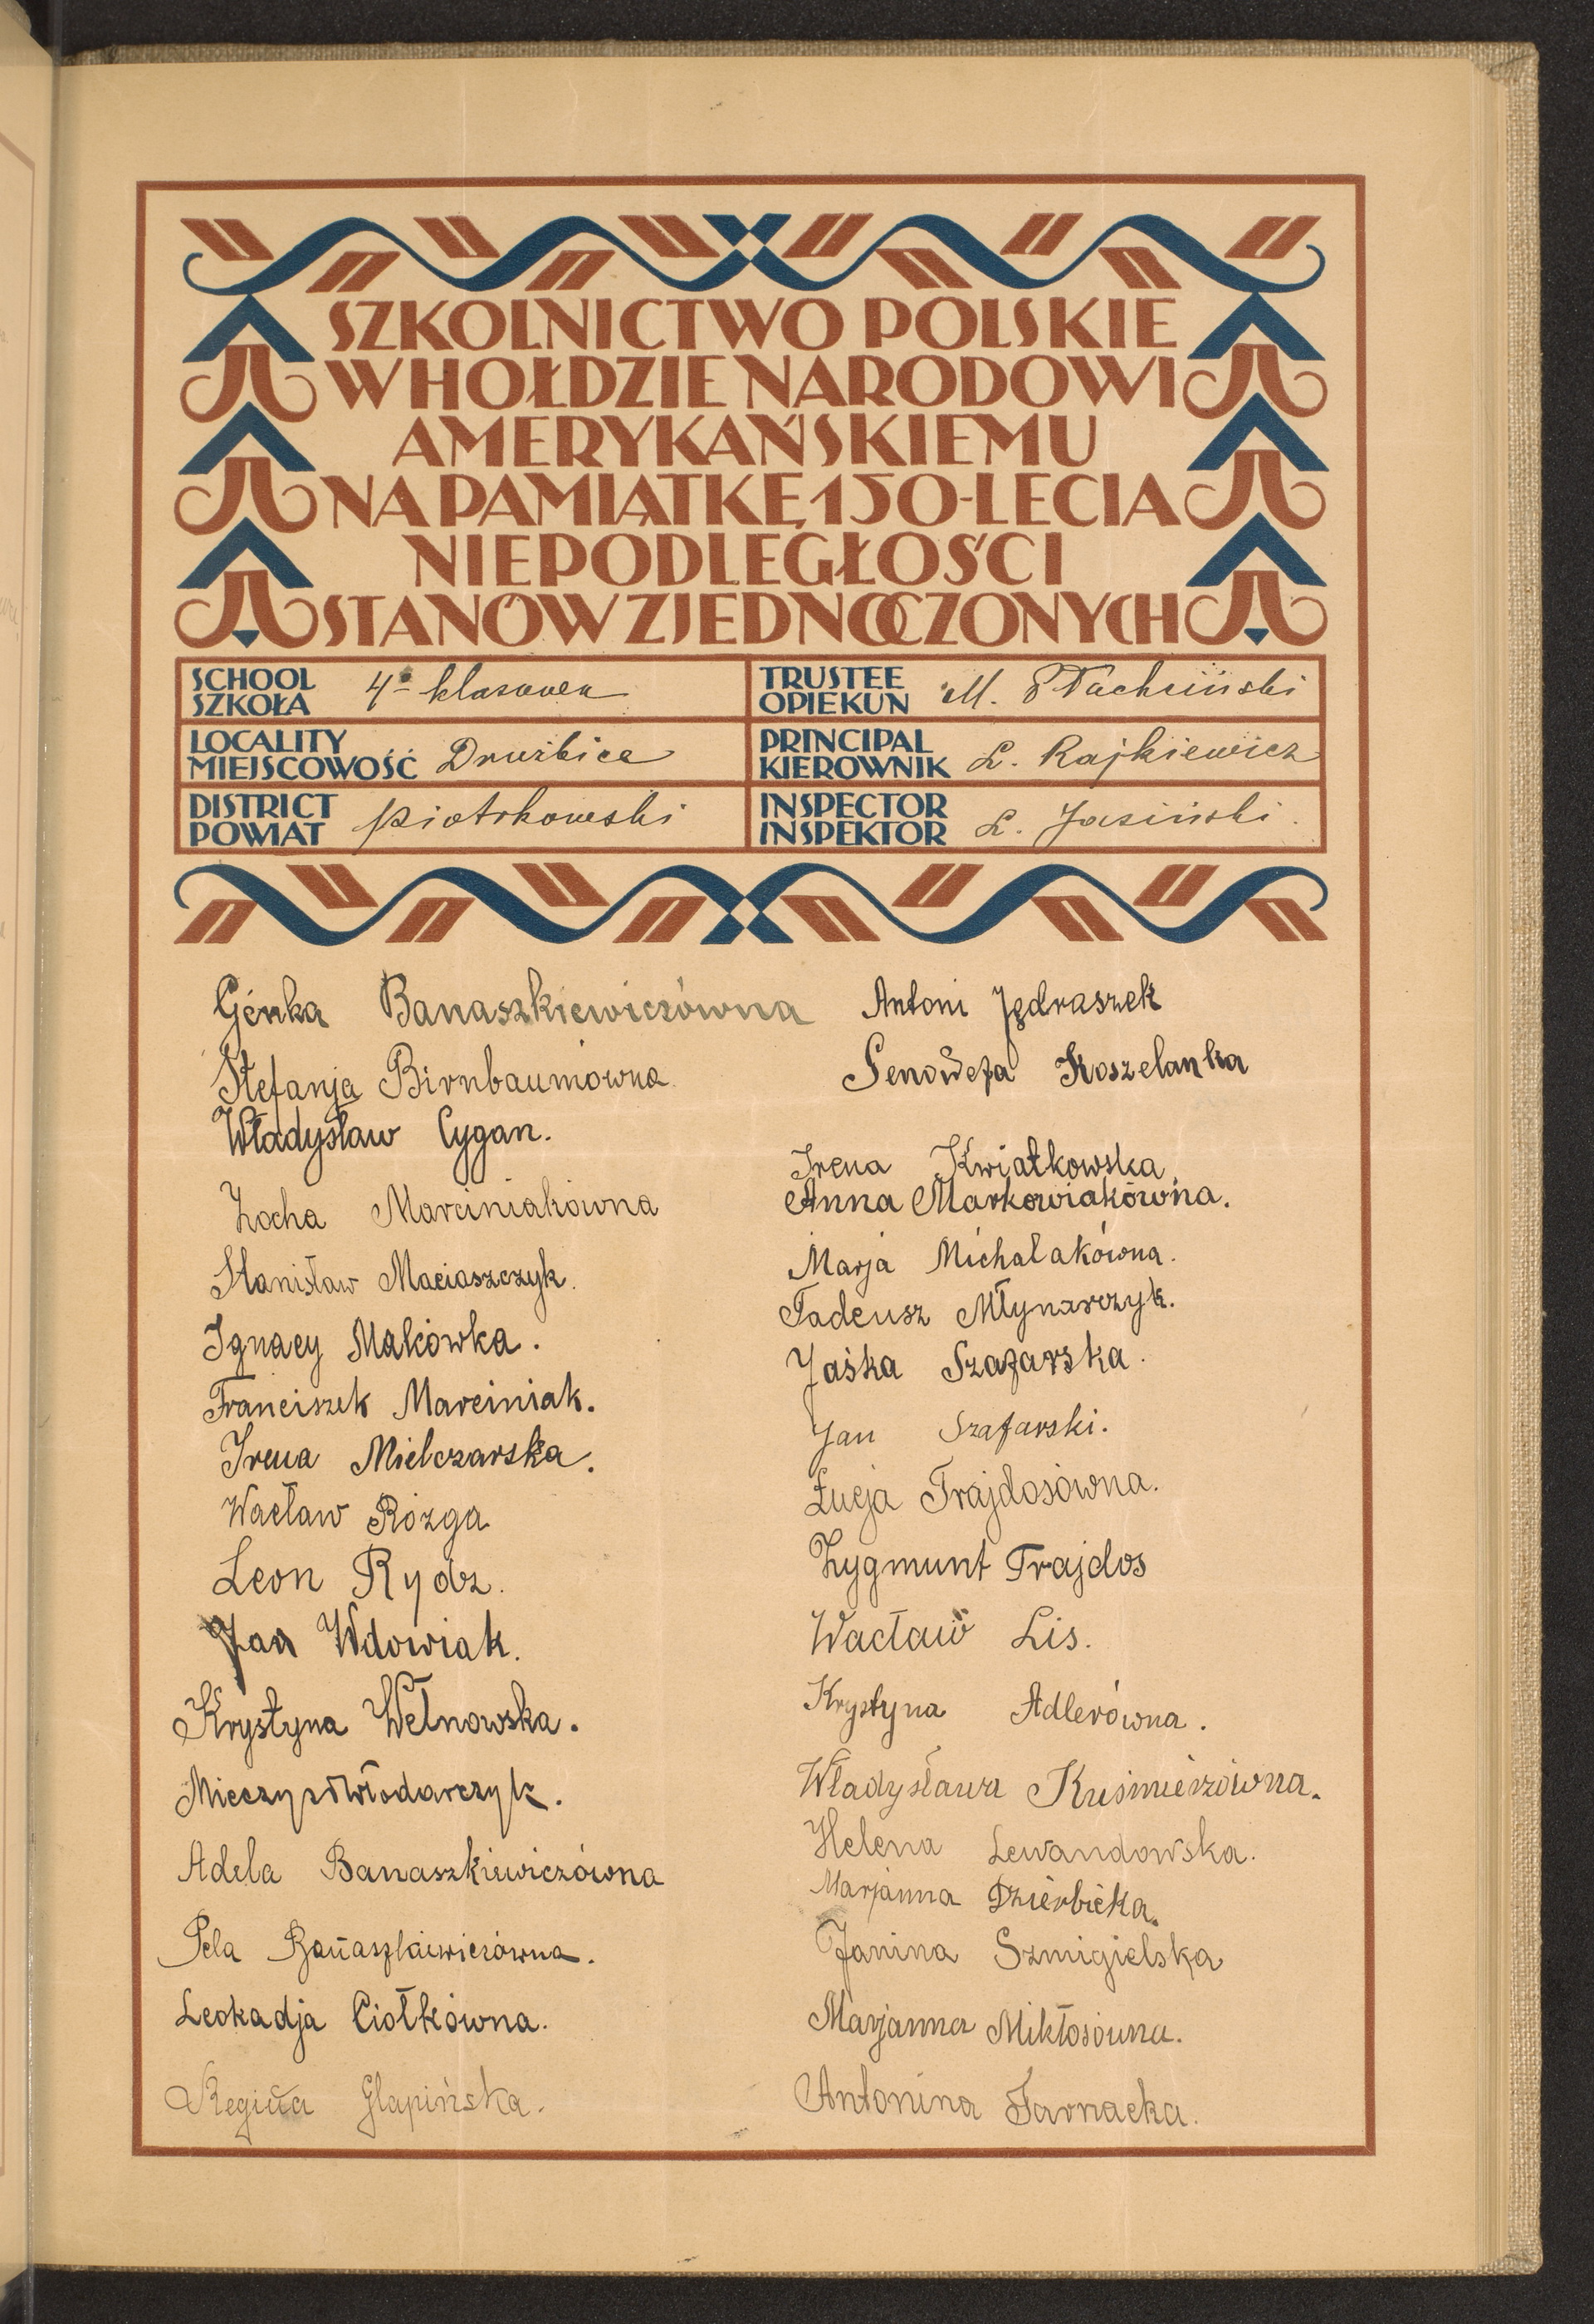 SZKOLNICTWO POLSKIE
W HOŁDZIE NARODOWI
AMERYKAŃSKIEMU
NA PAMIĄTKĘ 150-LECIA
NIEPODLEGŁOŚCI
STANÓW ZJEDNOCZONYCH
SCHOOL
SZKOŁA 4-klasowa
TRUSTEE
OPIEKUN M.
LOCALITY
MIEJSCOWOŚĆ Drużbice
PRINCIPAL
KIEROWNIK L. Rajkiewicz
DISTRICT
POWIAT piotrkowski
INSPECTOR
INSPEKTOR L. Jasiński.
Génka Banaszkiewiczówna
Stefanja Birnbaumówna
Władysław Cygan.
Zocha Marciniakówna
Stanisław Maciaszczyk.
Ignacy Makówka.
Franciszek Marciniak.
Irena Mielczarska.
Wacław Rózga
Leon Rydz.
Jan Wdowiak.
Krystyna Wełnowska.
Mieczysł Włodarczyk.
Adela Banaszkiewiczówna
Pela Banaszkiewiczówna.
Leokadja Ciołkówna.
Regina Glapińska.
Antoni Jędraszek
Genowefa Koszelanka
Irena Kwiatkowska
Anna Markowiakówna.
Marja Michalakówna.
Tadeusz Młynarczyk.
Jaśka Szafarska.
Jan Szafarski.
Łucja Trajdosówna.
Zygmunt Trajdos
Wacław Lis.
Krystyna Adlerówna.
Władysława Kuśmierzówna.
Helena Lewandowska.
Marjanna Dzierbicka.
Janina Szmigielska
Marjanna Mikłosówna.
Antonina Tarnacka.